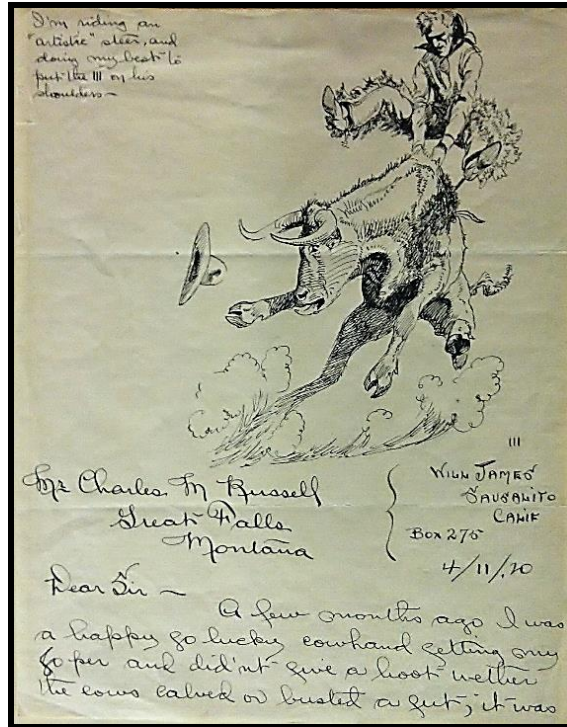 I'm riding an
"artistic" steer, and
doing my best to
put the III on his
shoulders —
III
Mr Charles M Russell
Great Falls
Montana
WILL JAMES
SAUSALITO
CALIF
Box 275
4/11/20
Dear Sir —
A few months ago I was
a happy go lucky cowhand getting my
go per and did'nt give a hoot wether
the cows calved or busted a gut; it was